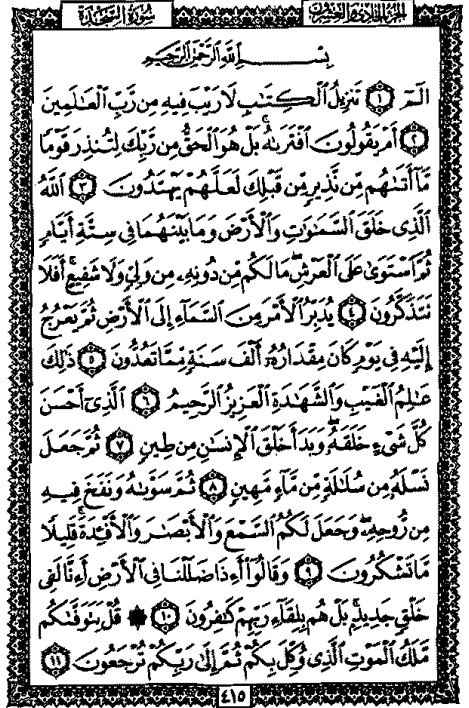 الجزء الحادي والعشرون
سورة السجدة
بسم الله الرحمن الرحيم
الٓمٓ ١ تَنزِيلُ ٱلْكِتَٰبِ لَا رَيْبَ فِيهِ مِن رَّبِّ ٱلْعَٰلَمِينَ
٢ أَمْ يَقُولُونَ ٱفْتَرَىٰهُ ۚ بَلْ هُوَ ٱلْحَقُّ مِن رَّبِّكَ لِتُنذِرَ قَوْمًا
مَّآ أَتَىٰهُم مِّن نَّذِيرٍ مِّن قَبْلِكَ لَعَلَّهُمْ يَهْتَدُونَ ٣ ٱللَّهُ
ٱلَّذِى خَلَقَ ٱلسَّمَٰوَٰتِ وَٱلْأَرْضَ وَمَا بَيْنَهُمَا فِى سِتَّةِ أَيَّامٍ
ثُمَّ ٱسْتَوَىٰ عَلَى ٱلْعَرْشِ ۖ مَا لَكُم مِّن دُونِهِۦ مِن وَلِىٍّ وَلَا شَفِيعٍ ۚ أَفَلَا
تَتَذَكَّرُونَ ٤ يُدَبِّرُ ٱلْأَمْرَ مِنَ ٱلسَّمَآءِ إِلَى ٱلْأَرْضِ ثُمَّ يَعْرُجُ
إِلَيْهِ فِى يَوْمٍ كَانَ مِقْدَارُهُۥٓ أَلْفَ سَنَةٍ مِّمَّا تَعُدُّونَ ٥ ذَٰلِكَ
عَٰلِمُ ٱلْغَيْبِ وَٱلشَّهَٰدَةِ ٱلْعَزِيزُ ٱلرَّحِيمُ ٦ ٱلَّذِىٓ أَحْسَنَ
كُلَّ شَىْءٍ خَلَقَهُۥ ۖ وَبَدَأَ خَلْقَ ٱلْإِنسَٰنِ مِن طِينٍ ٧ ثُمَّ جَعَلَ
نَسْلَهُۥ مِن سُلَٰلَةٍ مِّن مَّآءٍ مَّهِينٍ ٨ ثُمَّ سَوَّىٰهُ وَنَفَخَ فِيهِ
مِن رُّوحِهِۦ ۖ وَجَعَلَ لَكُمُ ٱلسَّمْعَ وَٱلْأَبْصَٰرَ وَٱلْأَفْـِٔدَةَ ۚ قَلِيلًا
مَّا تَشْكُرُونَ ٩ وَقَالُوٓا۟ أَءِذَا ضَلَلْنَا فِى ٱلْأَرْضِ أَءِنَّا لَفِى
خَلْقٍ جَدِيدٍۭ ۚ بَلْ هُم بِلِقَآءِ رَبِّهِمْ كَٰفِرُونَ ١٠ ۞ قُلْ يَتَوَفَّىٰكُم
مَّلَكُ ٱلْمَوْتِ ٱلَّذِى وُكِّلَ بِكُمْ ثُمَّ إِلَىٰ رَبِّكُمْ تُرْجَعُونَ ١١
٤١٥